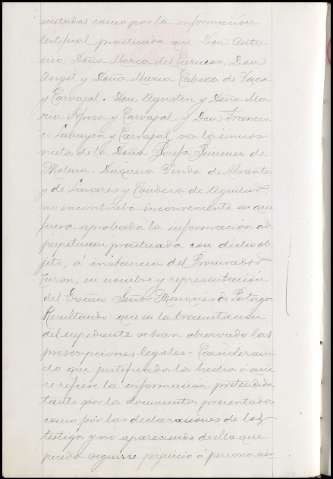 sentados como por la información
testifical practicada que Don
Doña Maria del Carmen, Don
Angel y Doña Maria Cabeza de Vaca
y Carvajal, Don Agustin y Doña Ma
ria y Carvajal y Don Francis
co y Carvajal, son los únicos
nietos de la Doña Josefa Jimenez de
Molina, Duquesa Viuda de
y de Linares y Condesa de
no encontraba inconveniente en que
fuera aprobada la información ad
perpetuam practicada con dicho ob
jeto, á instancia del Procurador
en nombre y representación
del Excmo Señor Marques de Portago
Resultando que en la tramitacion
del espediente se han observado las
prescripciones legales = Consideran
do que justificados los hechos á que
se refiere la informacion practicada
tanto por los documentos presentados
como por las declaraciones de los
testigos y no apareciendo de ella que
pueda seguirse perjuicio á persona